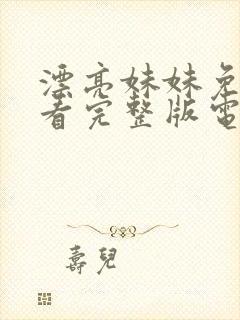 漂亮妹妹免
看完整版電
壽兒